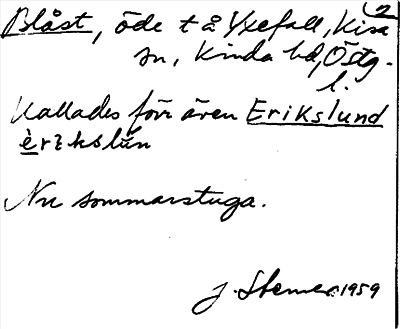 (2
Blåst, öde t å Yxefall, Kisa
sn, Kinda hd, Östg.
l.
Kallades förr även Erikslund
Nu sommarstuga.
J. 1959